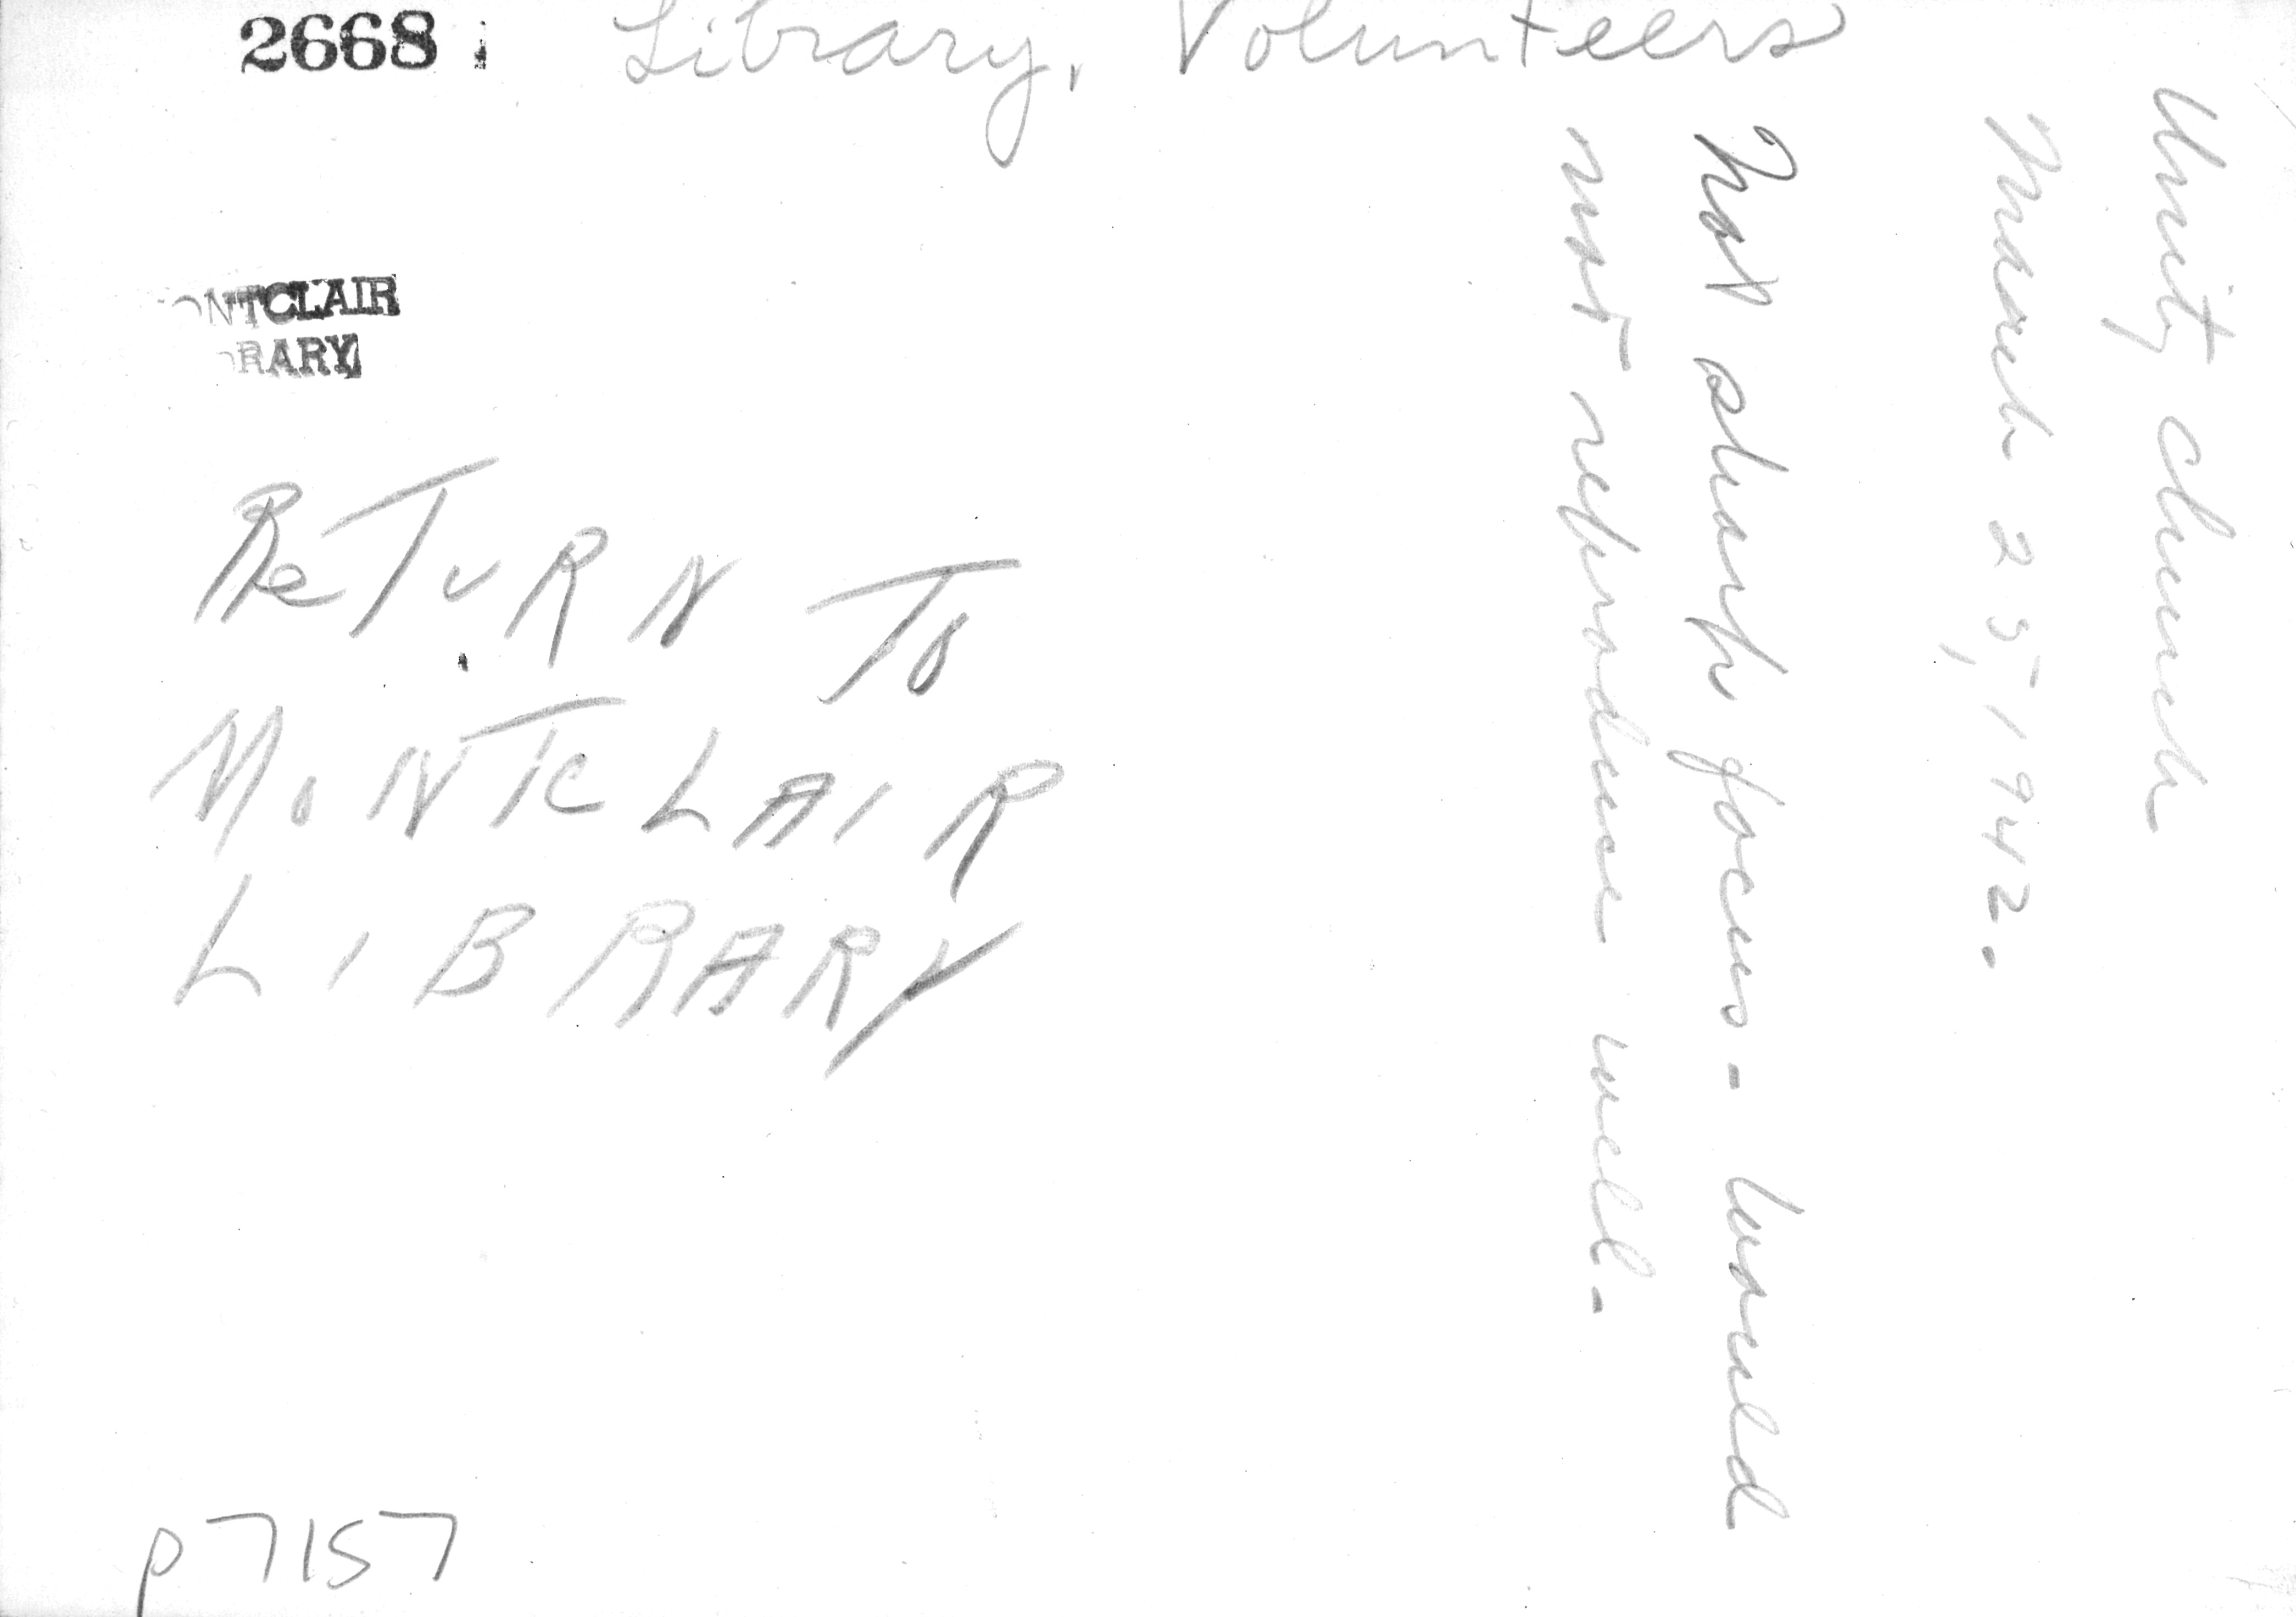 2668
Library, Volunteers
ONTCLAIR
RARY
ReTURN To
MONTCLAIR
LIBRARY
p7157
Unity Church
March 25, 1942.
Not sharp focus - Would
not reproduce well -